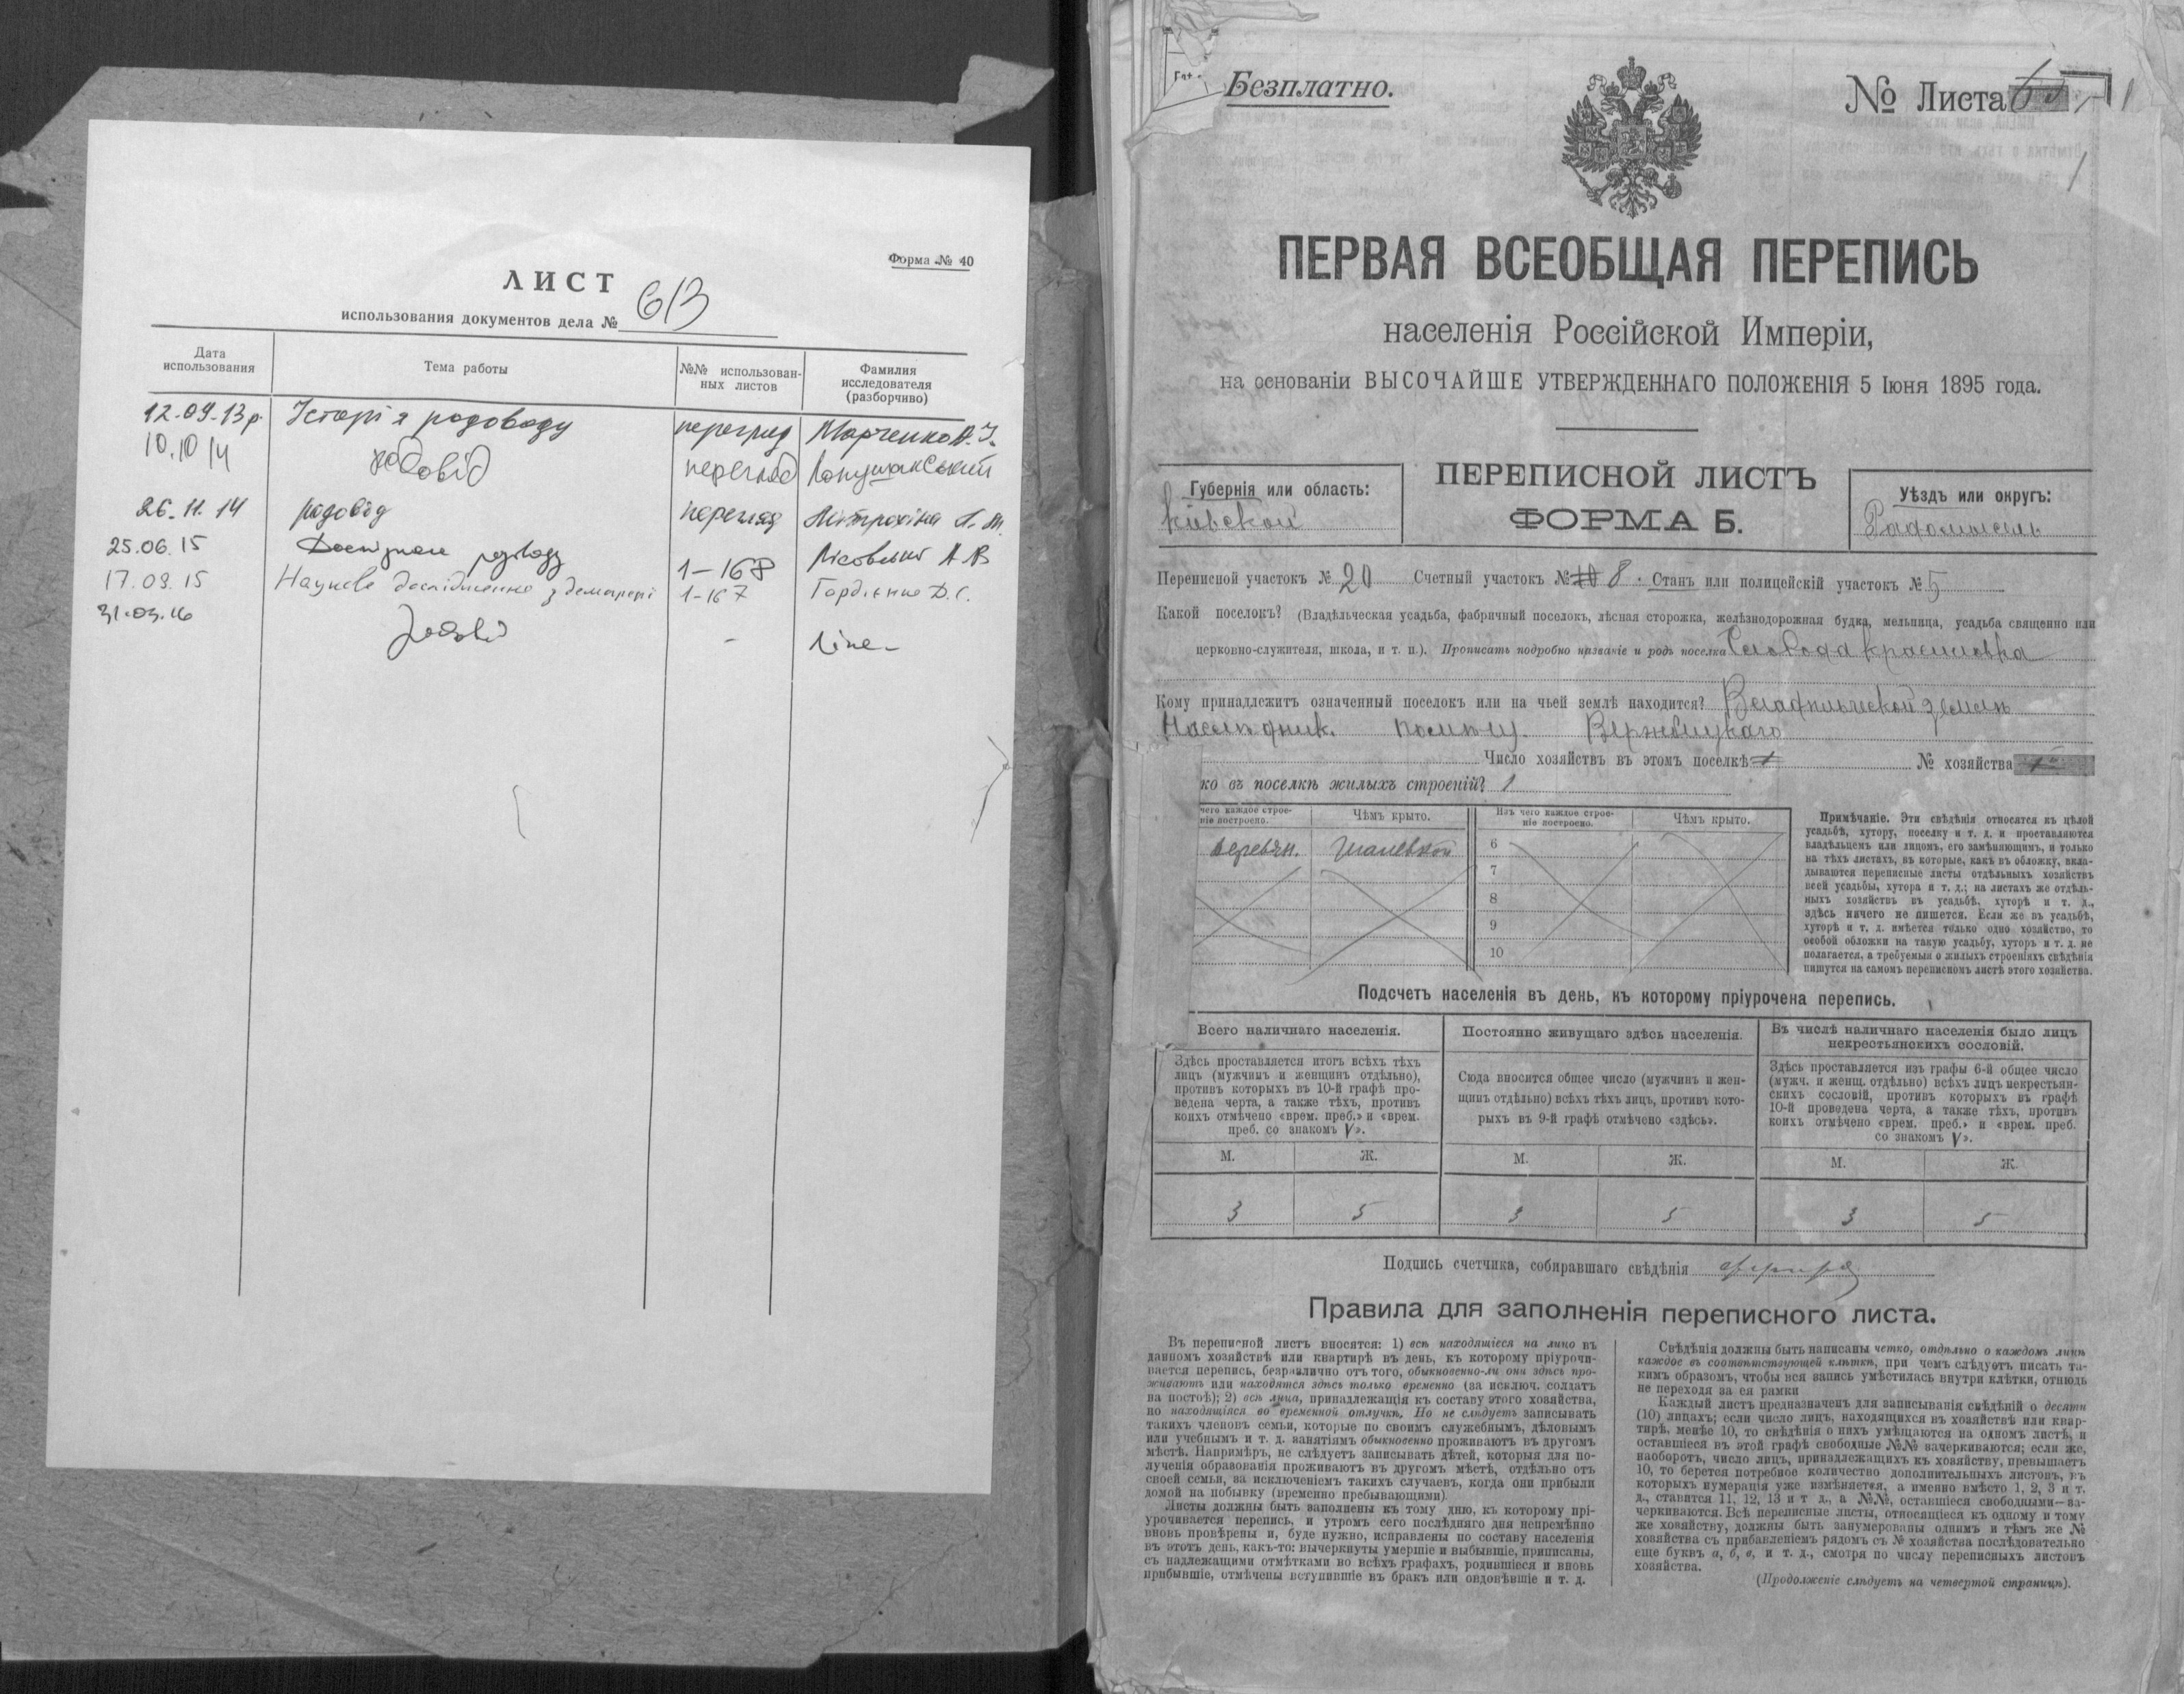 Форма № 40
ЛИСТ
использования документов дела № 613
Дата использования
Тема работы
№№ использован-
ных листов
Фамилия
исследователя
(разборчиво)
12.09.13р. Історія родоводу перегляд Марченко А.
10.10 14 родовід перегляд
26.11.14 родовід перегляд
25.06.15 родоводу 1-168 Лісовський А В
17.09.15 Наукове дослідження з 1-167 Гордієнко Д.С.
31.03.16 родовід -
Безплатно.
№ Листа
1
ПЕРВАЯ ВСЕОБЩАЯ ПЕРЕПИСЬ
населенія Россійской Имперіи,
на основаніи ВЫСОЧАЙШЕ УТВЕРЖДЕННАГО ПОЛОЖЕНІЯ 5 Іюня 1895 года.
Губернія или область:
Кіевской
ПЕРЕПИСНОЙ ЛИСТЪ
ФОРМА Б.
Уѣздъ или округъ:
Радомысль
Переписной участокъ № 20 Счетный участокъ № 8. Станъ или полицейскій участокъ № 5
Какой поселокъ? (Владѣльческая усадьба, фабричный поселокъ, лѣсная сторожка, желѣзнодорожная будка, мельница, усадьба священно или
церковно-служителя, школа, и т. п.). Прописать подробно названіе и родъ поселка Слобода
Кому принадлежитъ означенный поселокъ или на чьей землѣ находится? Владѣльческой землѣ
Наслѣдник.
Число хозяйствъ въ этомъ поселкѣ 1 № хозяйства
ко въ поселкѣ жилыхъ строеній? 1
чего каждое строе-
ніе построено.
Чѣмъ крыто.
Изъ чего каждое строе-
ніе построено.
Чѣмъ крыто.
деревян. Шалевкой
6
7
8
9
10
Примѣчаніе. Эти свѣдѣнія относятся къ цѣлой
усадьбѣ, хутору, поселку и т. д. и проставляются
владѣльцемъ или лицомъ, его замѣняющимъ, и только
на тѣхъ листахъ, въ которые, какъ въ обложку, вкла-
дываются переписные листы отдѣльныхъ хозяйствъ
всей усадьбы, хутора и т. д.; на листахъ же отдѣль-
ныхъ хозяйствъ въ усадьбѣ, хуторѣ и т. д.,
здѣсь ничего не пишется. Если же въ усадьбѣ,
хуторѣ и т. д. имѣется только одно хозяйство, то
особой обложки на такую усадьбу, хуторъ и т. д. не
полагается, а требуемыя о жилыхъ строеніяхъ свѣдѣнія
пишутся на самомъ переписномъ листѣ этого хозяйства.
Подсчетъ населенія въ день, къ которому пріурочена перепись.
Всего наличнаго населенія.
Здѣсь проставляется итогъ всѣхъ тѣхъ
лицъ (мужчинъ и женщинъ отдѣльно),
противъ которыхъ въ 10-й графѣ про-
ведена черта, а также тѣхъ, противъ
коихъ отмѣчено «врем. преб.» и «врем.
преб. со знакомъ V».
Постоянно живущаго здѣсь населенія.
Сюда вносится общее число (мужчинъ и жен-
щинъ отдѣльно) всѣхъ тѣхъ лицъ, противъ кото-
рыхъ въ 9-й графѣ отмѣчено «здѣсь».
Въ числѣ наличнаго населенія было лицъ
некрестьянскихъ сословій.
Здѣсь проставляется изъ графы 6-й общее число
(мужч. и женщ. отдѣльно) всѣхъ лицъ некрестьян-
скихъ сословій, противъ которыхъ въ графѣ
10-й проведена черта, а также тѣхъ, противъ
коихъ отмѣчено «врем. преб.» и «врем. преб.
со знакомъ V».
М. Ж. М. Ж. М. Ж.
3 5 3 5 3 5
Подпись счетчика, собиравшаго свѣдѣнія
Правила для заполненія переписного листа.
Въ переписной листъ вносятся: 1) всѣ находящіеся на лицо въ
данномъ хозяйствѣ или квартирѣ въ день, къ которому пріурочи-
вается перепись, безразлично отъ того, обыкновенно-ли они здѣсь про-
живаютъ или находятся здѣсь только временно (за исключ. солдатъ
на постоѣ); 2) всѣ лица, принадлежащія къ составу этого хозяйства,
но находящіяся во временной отлучкѣ. Но не слѣдуетъ записывать
такихъ членовъ семьи, которые по своимъ служебнымъ, дѣловымъ
или учебнымъ и т. д. занятіямъ обыкновенно проживаютъ въ другомъ
мѣстѣ. Напримѣръ, не слѣдуетъ записывать дѣтей, которыя для по-
лученія образованія проживаютъ въ другомъ мѣстѣ, отдѣльно отъ
своей семьи, за исключеніемъ такихъ случаевъ, когда они прибыли
домой на побывку (временно пребывающими).
Листы должны быть заполнены къ тому дню, къ которому прі-
урочивается перепись, и утромъ сего послѣдняго дня непремѣнно
вновь провѣрены и, буде нужно, исправлены по составу населенія
въ этотъ день, какъ-то: вычеркнуты умершіе и выбывшіе, приписаны,
съ надлежащими отмѣтками во всѣхъ графахъ, родившіеся и вновь
прибывшіе, отмѣчены вступившіе въ бракъ или овдовѣвшіе и т. д.
Свѣдѣнія должны быть написаны четко, отдѣльно о каждомъ лицѣ
каждое въ соотвѣтствующей клѣткѣ, при чемъ слѣдуетъ писать та-
кимъ образомъ, чтобы вся запись умѣстилась внутри клѣтки, отнюдь
не переходя за ея рамки
Каждый листъ предназначенъ для записыванія свѣдѣній о десяти
(10) лицахъ; если число лицъ, находящихся въ хозяйствѣ или квар-
тирѣ, менѣе 10, то свѣдѣнія о нихъ умѣщаются на одномъ листѣ, и
оставшіеся въ этой графѣ свободные №№ зачеркиваются; если же,
наоборотъ, число лицъ, принадлежащихъ къ хозяйству, превышаетъ
10, то берется потребное количество дополнительныхъ листовъ, въ
которыхъ нумерація уже измѣняется, а именно вмѣсто 1, 2, 3 и т.
д., ставится 11, 12, 13 и т д., а №№, оставшіеся свободными—за-
черкиваются. Всѣ переписные листы, относящіеся къ одному и тому
же хозяйству, должны быть занумерованы однимъ и тѣмъ же №
хозяйства съ прибавленіемъ рядомъ съ № хозяйства послѣдовательно
еще буквъ а, б, в, и т. д., смотря по числу переписныхъ листовъ
хозяйства.
(Продолженіе слѣдуетъ на четвертой страницѣ).